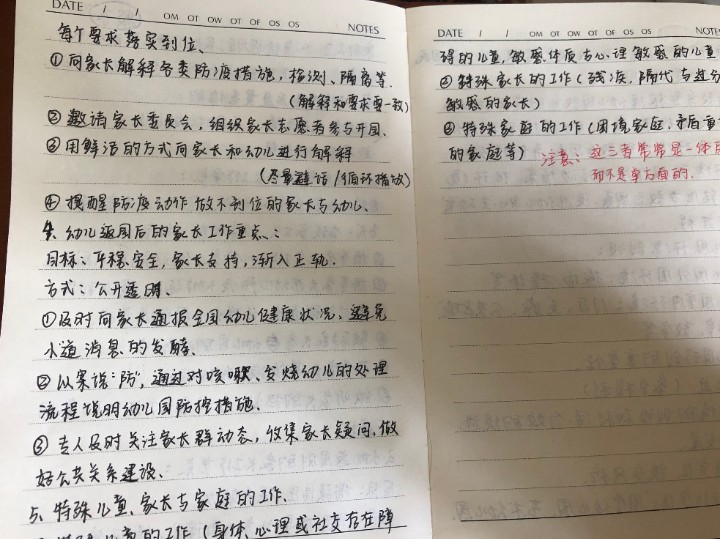 DATE / /
OM OT OW OT OF OS OS
NOTES
每个要求落实到位、
①向家长解释各类防疫措施，检测、隔离等.
（解释和要求要一致）
②邀请家长委员会，组织家长志愿者参与开园.
③用鲜活的方式向家长和幼儿进行解释
（尽量避话/循环播放）
④提醒防疫动作做不到位的家长与幼儿、
4、幼儿返园后的家长工作重点：
目标：平稳安全，家长支持，渐入正轨.
方式：公开透明.
①及时向家长通报全园幼儿健康状况、避免
小道消息的发酵.
②从案说"防"，通过对咳嗽、发烧幼儿的处理
流程说明幼儿园防控措施.
③专人及时关注家长群动态，收集家长疑问，做
好公共关系建设、
5、特殊儿童、家长与家庭的工作.
儿童的工作（身体、心理或社交存在障
DATE / /
OM OT OW OT OF OS OS
碍的儿童，敏感体质与心理敏感的儿童
②特殊家长的工作（残疾，隔代与过分
敏感的家长）
特殊家庭的工作（困境家庭，矛盾重
的家庭等）
注意：这三者常常是一体
而不是单方面的.